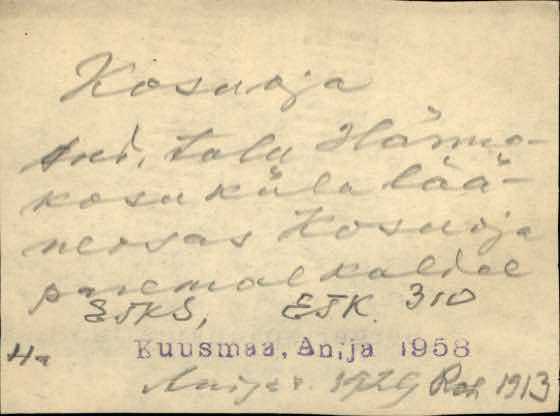 Kosuoja
talu Härma-
kosu küla lää-
neosas Kosuoja
paremal kaldal
ESTKS, ESTK. 310
Ha Kuusmaa, Anija 1958
Anija 1913